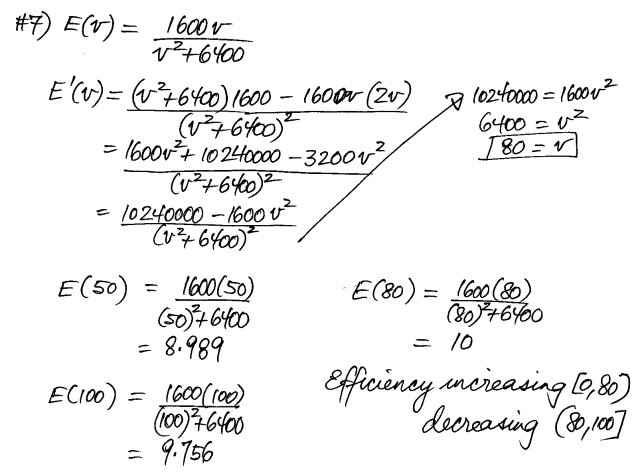 #7) E(v) = 1600v / v²+6400
E'(v) = (v²+6400)1600 - 1600v(2v) / (v²+6400)²
= 1600v² + 10240000 - 3200v² / (v²+6400)²
= 10240000 - 1600v² / (v²+6400)²
10240000 = 1600v²
6400 = v²
80 = v
E(50) = 1600(50) / (50)²+6400
= 8.989
E(100) = 1600(100) / (100)²+6400
= 9.756
E(80) = 1600(80) / (80)²+6400
= 10
Efficiency increasing [0,80)
decreasing (80,100]